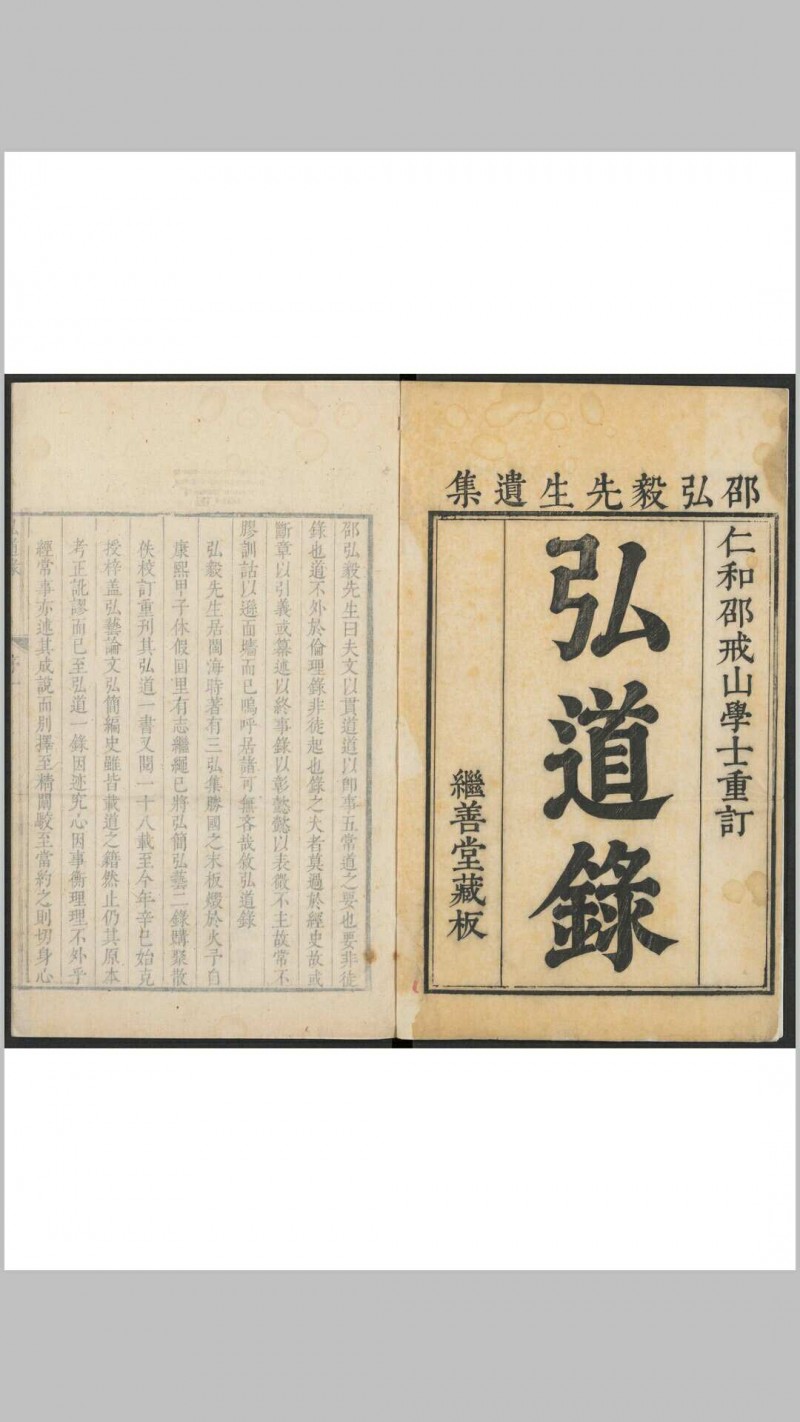 邵弘毅先生遺集
仁和邵戒山學士重訂
弘道錄
繼善堂藏板
邵弘毅先生曰夫文以貫道道以卽事五常道之要也要非徒
錄也道不外於倫理錄非徒起也錄之大者莫過於經史故或
斷章以引義或纂述以終事錄以彰懿懿以表微不主故常不
膠訓詁以遜面墻而已嗚呼居諸可無吝哉敘弘道錄
弘毅先生居閩海時著有三弘集勝國之末板燬於火予自
康熙甲子休假回里有志繼繩已將弘簡弘藝二錄購聚散
佚校訂重刊其弘道一書又閱一十八載至今年辛巳始克
授梓盖弘藝論文弘簡編史雖皆載道之籍然止仍其原本
考正訛謬而已至弘道一錄因迹究心因事衡理理不外乎
經常事亦述其成說而別擇至精闡較至當約之則切身心
弘道錄